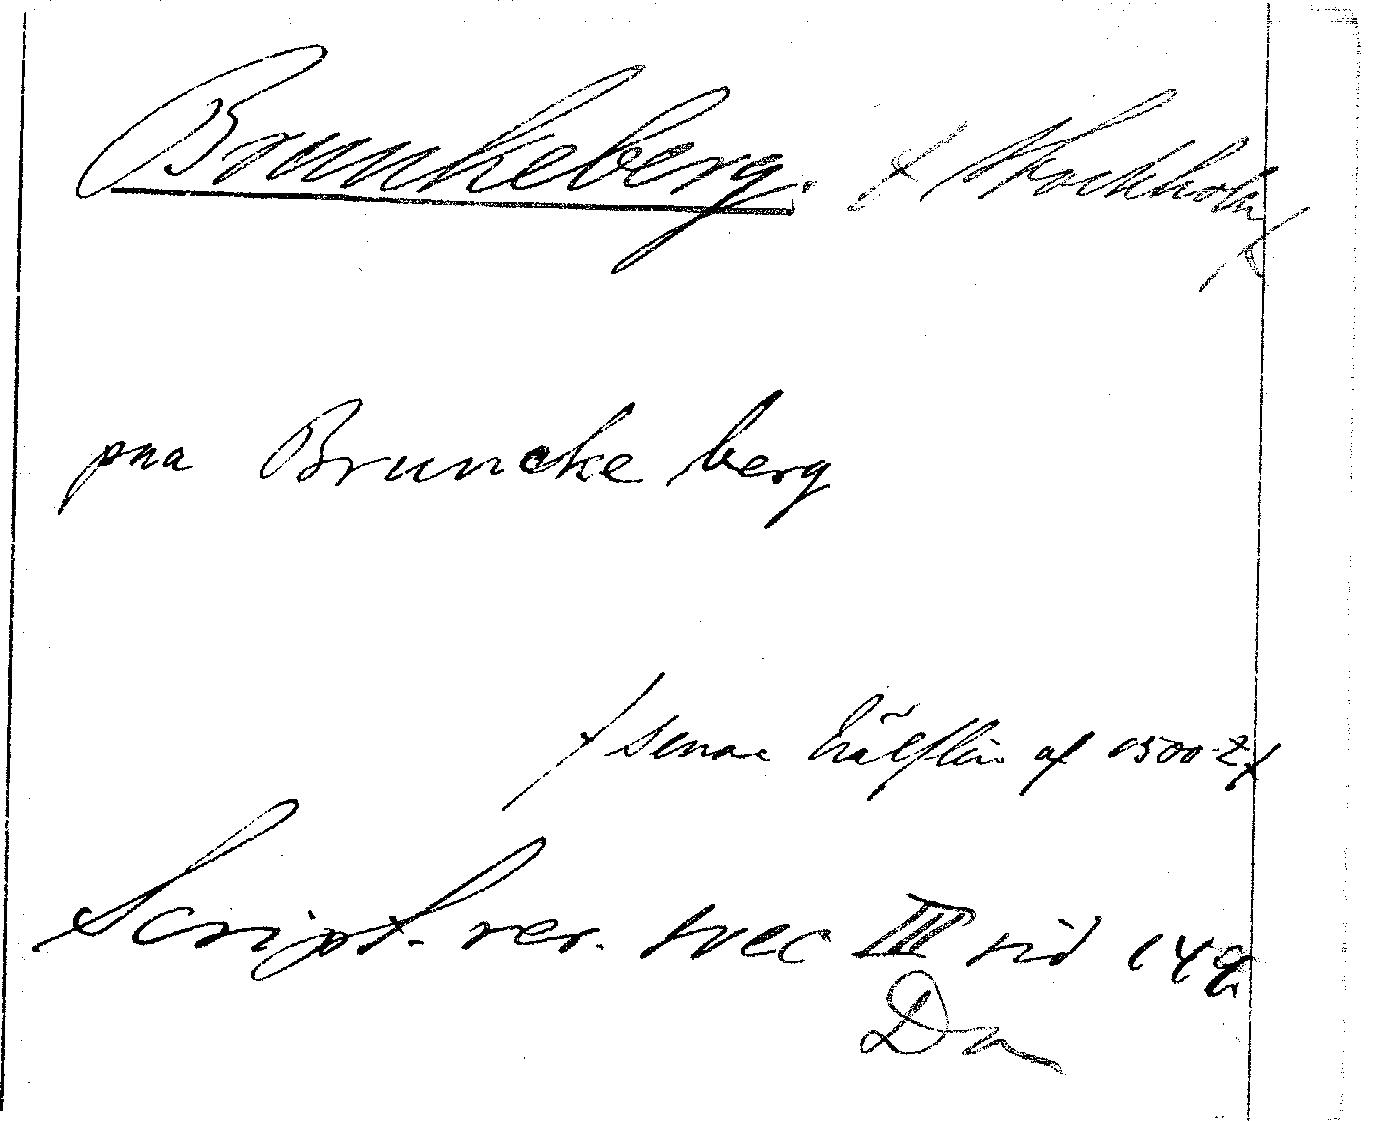 Brunkeberg. / Stockholm /
paa Bruncke berg
/ senare hälften af 1500-t /
Script. rer. svec III sid 149
Da